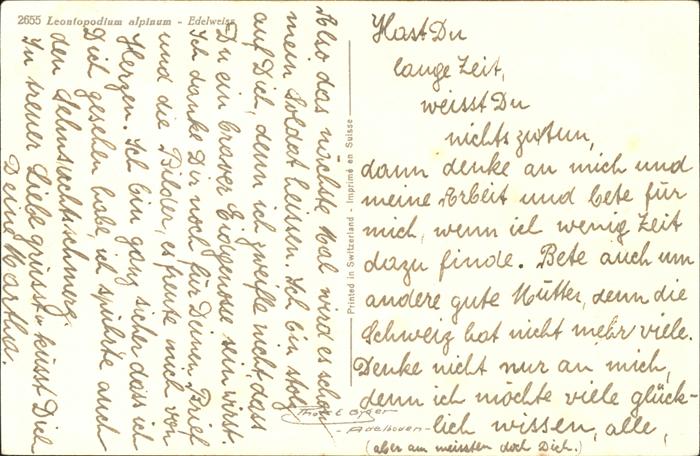 2655 Leontopodium alpinum - Edelweiss
Hast Du
lange Zeit,
weisst Du
nichts zutun,
dann denke an mich und
meine Arbeit und bete für
mich, wenn ich wenig Zeit
dazu finde. Bete auch um
andere gute Mütter, denn die
Schweiz hat nicht mehr viele.
Denke nicht nur an mich,
denn ich möchte viele glück-
lich wissen, alle,
(aber am meissten doch Dich.)
Also das nächste Mal wird es schon
mein Soldat heissen. Ich bin stolz
auf Dich, denn ich zweifle nicht, dass
Du ein braver Eidgenosse sein wirst.
Ich danke Dir noch für Deinen Brief
und die Bilder, es freute mich von
Herzen. Ich bin ganz sicher dass ich
Dich gesehen habe, ich spührte auch
den Sehnsuchtschmerz.
In treuer Liebe grüsst u. küsst Dich
Deine Martha.
Printed in Switzerland - Imprimé en Suisse
Photo E. Gyger
- Adelboden -